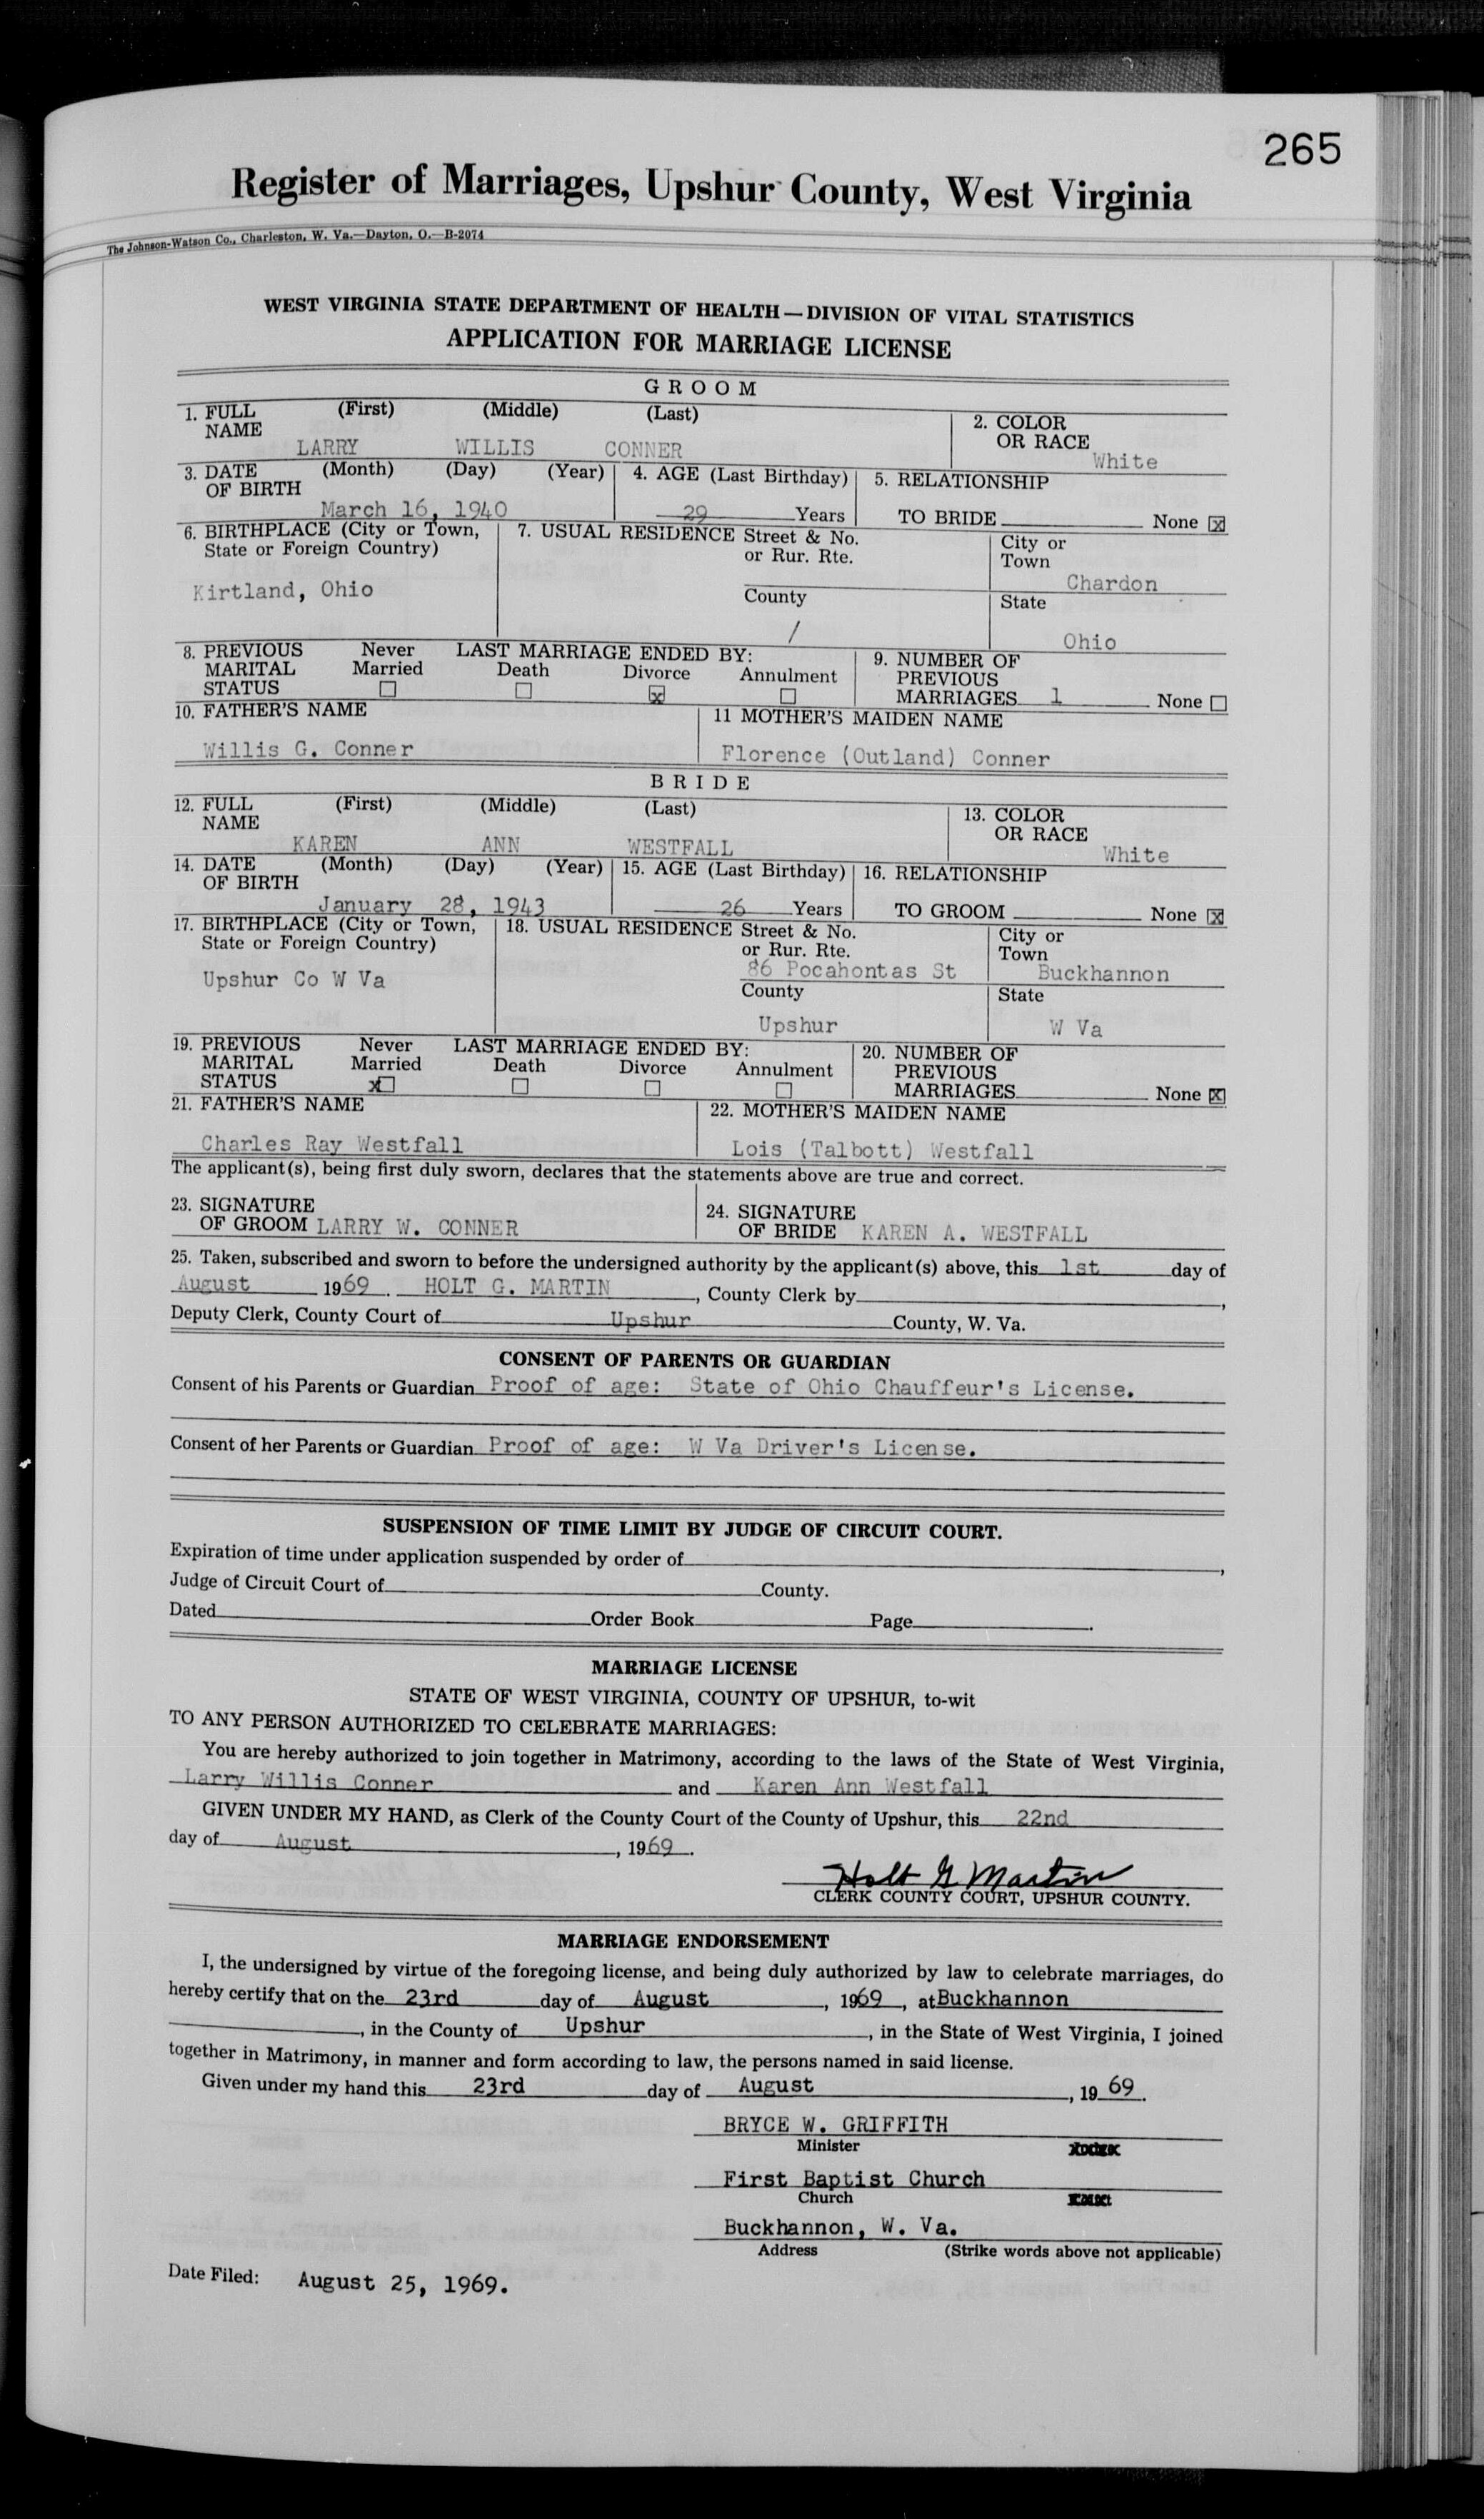 265
Register of Marriages, Upshur County, West Virginia
The Johnson-Watson Co., Charleston, W. Va.—Dayton, O.—B-2074
WEST VIRGINIA STATE DEPARTMENT OF HEALTH—DIVISION OF VITAL STATISTICS
APPLICATION FOR MARRIAGE LICENSE
GROOM
1. FULL NAME (First) (Middle) (Last) 2. COLOR OR RACE
LARRY WILLIS CONNER White
3. DATE OF BIRTH (Month) (Day) (Year) 4. AGE (Last Birthday) 5. RELATIONSHIP
March 16, 1940 29 Years TO BRIDE None ☒
6. BIRTHPLACE (City or Town, State or Foreign Country) 7. USUAL RESIDENCE Street & No. or Rur. Rte. City or Town
Kirtland, Ohio Chardon
County State
/ Ohio
8. PREVIOUS MARITAL STATUS Never Married ☐ LAST MARRIAGE ENDED BY: Death ☐ Divorce ☒ Annulment ☐ 9. NUMBER OF PREVIOUS MARRIAGES 1 None ☐
10. FATHER'S NAME 11 MOTHER'S MAIDEN NAME
Willis G. Conner Florence (Outland) Conner
BRIDE
12. FULL NAME (First) (Middle) (Last) 13. COLOR OR RACE
KAREN ANN WESTFALL White
14. DATE OF BIRTH (Month) (Day) (Year) 15. AGE (Last Birthday) 16. RELATIONSHIP
January 28, 1943 26 Years TO GROOM None ☒
17. BIRTHPLACE (City or Town, State or Foreign Country) 18. USUAL RESIDENCE Street & No. or Rur. Rte. City or Town
Upshur Co W Va 86 Pocahontas St Buckhannon
County State
Upshur W Va
19. PREVIOUS MARITAL STATUS Never Married x☐ LAST MARRIAGE ENDED BY: Death ☐ Divorce ☐ Annulment ☐ 20. NUMBER OF PREVIOUS MARRIAGES None ☒
21. FATHER'S NAME 22. MOTHER'S MAIDEN NAME
Charles Ray Westfall Lois (Talbott) Westfall
The applicant(s), being first duly sworn, declares that the statements above are true and correct.
23. SIGNATURE OF GROOM LARRY W. CONNER 24. SIGNATURE OF BRIDE KAREN A. WESTFALL
25. Taken, subscribed and sworn to before the undersigned authority by the applicant(s) above, this 1st day of
August 1969. HOLT G. MARTIN, County Clerk by ,
Deputy Clerk, County Court of Upshur County, W. Va.
CONSENT OF PARENTS OR GUARDIAN
Consent of his Parents or Guardian Proof of age: State of Ohio Chauffeur's License.
Consent of her Parents or Guardian Proof of age: W Va Driver's License.
SUSPENSION OF TIME LIMIT BY JUDGE OF CIRCUIT COURT.
Expiration of time under application suspended by order of ,
Judge of Circuit Court of County.
Dated Order Book Page .
MARRIAGE LICENSE
STATE OF WEST VIRGINIA, COUNTY OF UPSHUR, to-wit
TO ANY PERSON AUTHORIZED TO CELEBRATE MARRIAGES:
You are hereby authorized to join together in Matrimony, according to the laws of the State of West Virginia,
Larry Willis Conner and Karen Ann Westfall
GIVEN UNDER MY HAND, as Clerk of the County Court of the County of Upshur, this 22nd
day of August, 1969.
Holt G Martin
CLERK COUNTY COURT, UPSHUR COUNTY.
MARRIAGE ENDORSEMENT
I, the undersigned by virtue of the foregoing license, and being duly authorized by law to celebrate marriages, do
hereby certify that on the 23rd day of August, 1969, at Buckhannon
, in the County of Upshur, in the State of West Virginia, I joined
together in Matrimony, in manner and form according to law, the persons named in said license.
Given under my hand this 23rd day of August, 1969.
BRYCE W. GRIFFITH
Minister
First Baptist Church
Church
Buckhannon, W. Va.
Address (Strike words above not applicable)
Date Filed: August 25, 1969.